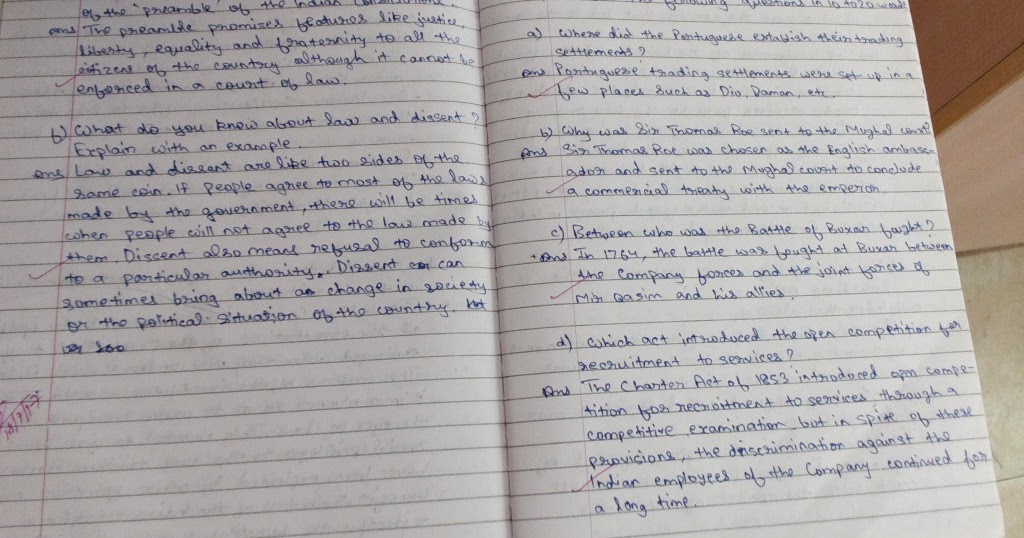 of the 'preamble' of the Indian Constitution.
Ans The preamble promises features like justice,
liberty, equality and fraternity to all the
citizens of the country although it cannot be
enforced in a court of law.
b) What do you know about law and dissent?
Explain with an example.
Ans Law and dissent are like two sides of the
same coin. If people agree to most of the laws
made by the government, there will be times
when people will not agree to the law made by
them. Dissent also means refusal to conform
to a particular authority. Dissent can
sometimes bring about a change in society
or the political situation of the country.
following questions in 10 to 20 words
a) Where did the Portuguese establish their trading
settlements?
Ans Portuguese trading settlements were set up in a
few places such as Diu, Daman, etc.
b) Why was Sir Thomas Roe sent to the Mughal court?
Ans Sir Thomas Roe was chosen as the English ambass-
ador and sent to the Mughal court to conclude
a commercial treaty with the emperor.
c) Between who was the Battle of Buxar fought?
Ans In 1764, the battle was fought at Buxar between
the Company forces and the joint forces of
Mir Qasim and his allies.
d) Which act introduced the open competition for
recruitment to services?
Ans The Charter Act of 1853 introduced open compe-
tition for recruitment to services through a
competitive examination but in spite of these
provisions, the discrimination against the
Indian employees of the Company continued for
a long time.